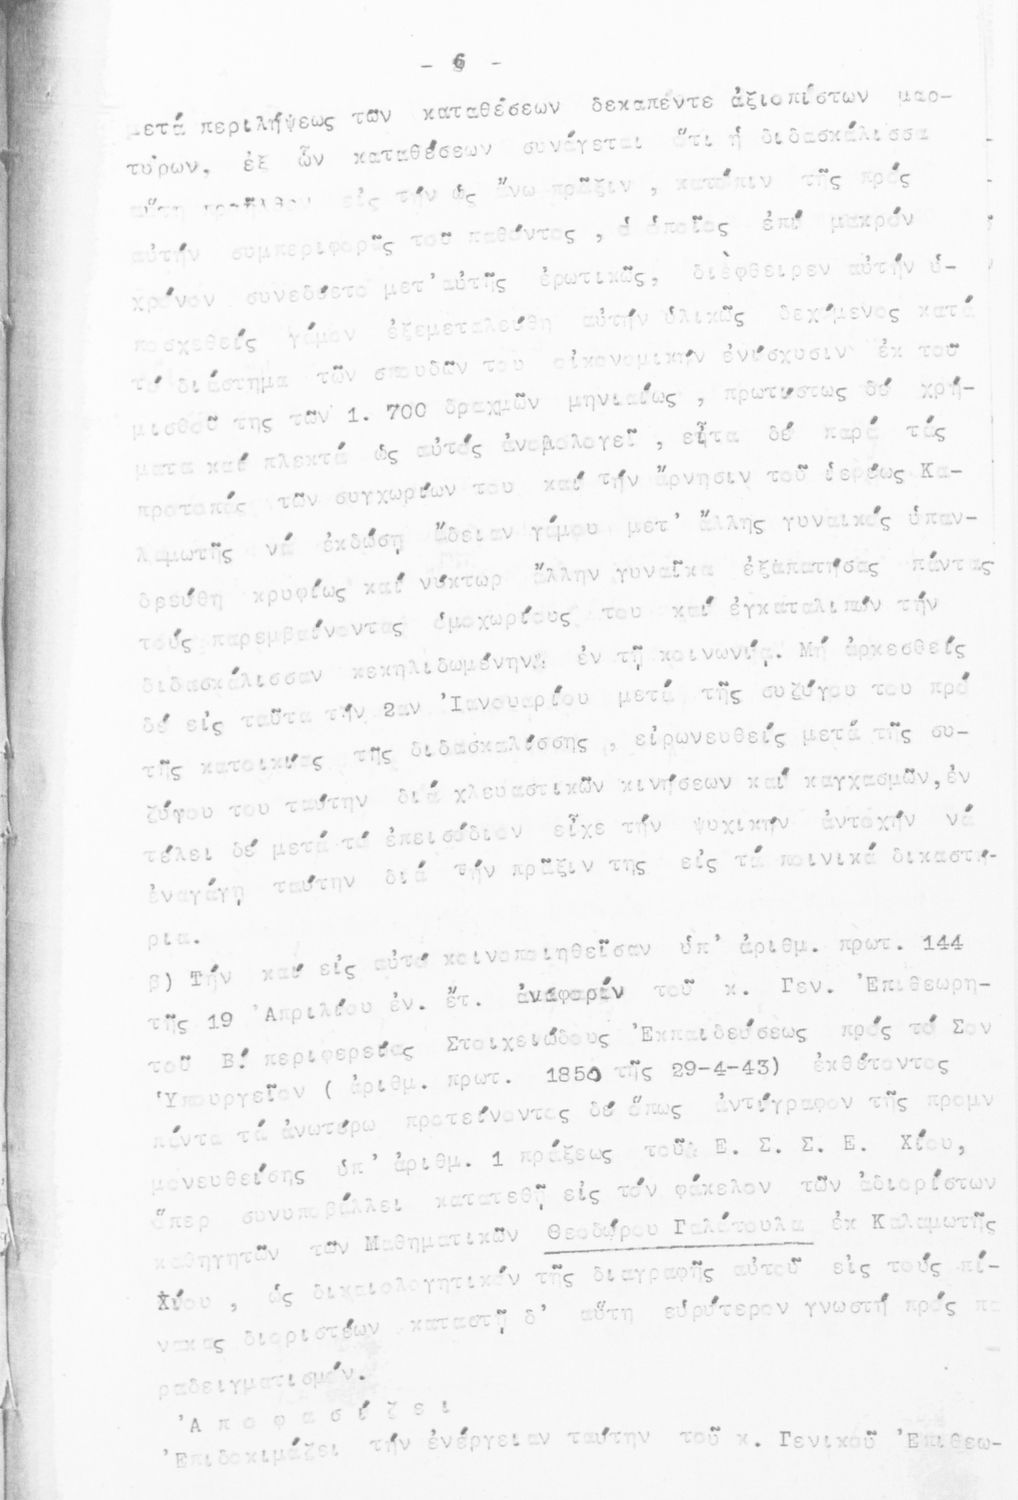 - 6 -
μετά περιλήψεως τῶν καταθέσεων δεκαπέντε ἀξιοπίστων μαρ-
τύρων, ἐξ ὧν καταθέσεων συνάγεται ὅτι ἡ διδασκάλισσα
αὕτη προῆλθεν εἰς τήν ὡς ἄνω πρᾶξιν , κατόπιν τῆς πρός
αὐτήν συμπεριφορᾶς τοῦ παθόντος , ὁ ὁποῖος ἐπί μακρόν
χρόνον συνεδέετο μετ'αὐτῆς ἐρωτικῶς, διέφθειρεν αὐτήν ὑ-
ποσχεθείς γάμον ἐξεμεταλεύθη αὐτήν ὑλικῶς δεχόμενος κατά
τό διάστημα τῶν σπουδῶν του οἰκονομικήν ἐνίσχυσιν ἐκ τοῦ
μισθοῦ της τῶν 1. 700 δραχμῶν μηνιαίως , πρωτίστως δέ χρή-
ματα καί πλεκτά ὡς αὐτός ἀνομολογεῖ , εἶτα δέ παρά τάς
προτοπάς τῶν συγχωρίων του καί τήν ἄρνησιν τοῦ ἱερέως Κα-
λαμωτῆς νά ἐκδώσῃ ἄδειαν γάμου μετ' ἄλλης γυναικός ὑπαν-
δρεύθη κρυφίως καί νύκτωρ ἄλλην γυναῖκα ἐξαπατήσας πάντας
τούς παρεμβαίνοντας ὁμοχωρίους του καί ἐγκαταλιπών τήν
διδασκάλισσαν κεκηλιδωμένην ἐν τῇ κοινωνίᾳ. Μή ἀρκεσθείς
δέ εἰς ταῦτα τήν 2αν Ἰανουαρίου μετά τῆς συζύγου του πρό
τῆς κατοικίας τῆς διδασκαλίσσης , εἰρωνευθείς μετά τῆς συ-
ζύγου του ταύτην διά χλευαστικῶν κινήσεων καί καγχασμῶν,ἐν
τέλει δέ μετά τό ἐπεισόδιον εἶχε τήν ψυχικήν ἀντοχήν νά
ἐναγάγῃ ταύτην διά τήν πρᾶξιν της εἰς τά ποινικά δικαστή-
ρια.
β) Τήν καί εἰς αὐτό κοινοποιηθεῖσαν ὑπ' ἀριθμ. πρωτ. 144
τῆς 19 Ἀπριλίου ἐν. ἔτ. ἀναφοράν τοῦ κ. Γεν. Ἐπιθεωρη-
τοῦ Β! περιφερείας Στοιχειώδους Ἐκπαιδεύσεως πρός τό Σον
Ὑπουργεῖον ( ἀριθμ. πρωτ. 1850 τῆς 29-4-43) ἐκθέτοντος
πάντα τά ἀνωτέρω προτείνοντος δέ ὅπως ἀντίγραφον τῆς προμν
μονευθείσης ὑπ' ἀριθμ. 1 πράξεως τοῦ Ε. Σ. Σ. Ε. Χίου,
ὅπερ συνυποβάλλει κατατεθῇ εἰς τόν φάκελον τῶν ἀδιορίστων
καθηγητῶν τῶν Μαθηματικῶν Θεοδώρου Γαλάτουλα ἐκ Καλαμωτῆς
Χίου , ὡς δικαιολογητικόν τῆς διαγραφῆς αὐτοῦ εἰς τούς πί-
νακας διοριστέων καταστῇ δ' αὕτη εὐρύτερον γνωστή πρός πα
ραδειγματισμόν.
Ἀ π ο φ α σ ί ζ ε ι
Ἐπιδοκιμάζει τήν ἐνέργειαν ταύτην τοῦ κ. Γενικοῦ Ἐπιθεω-